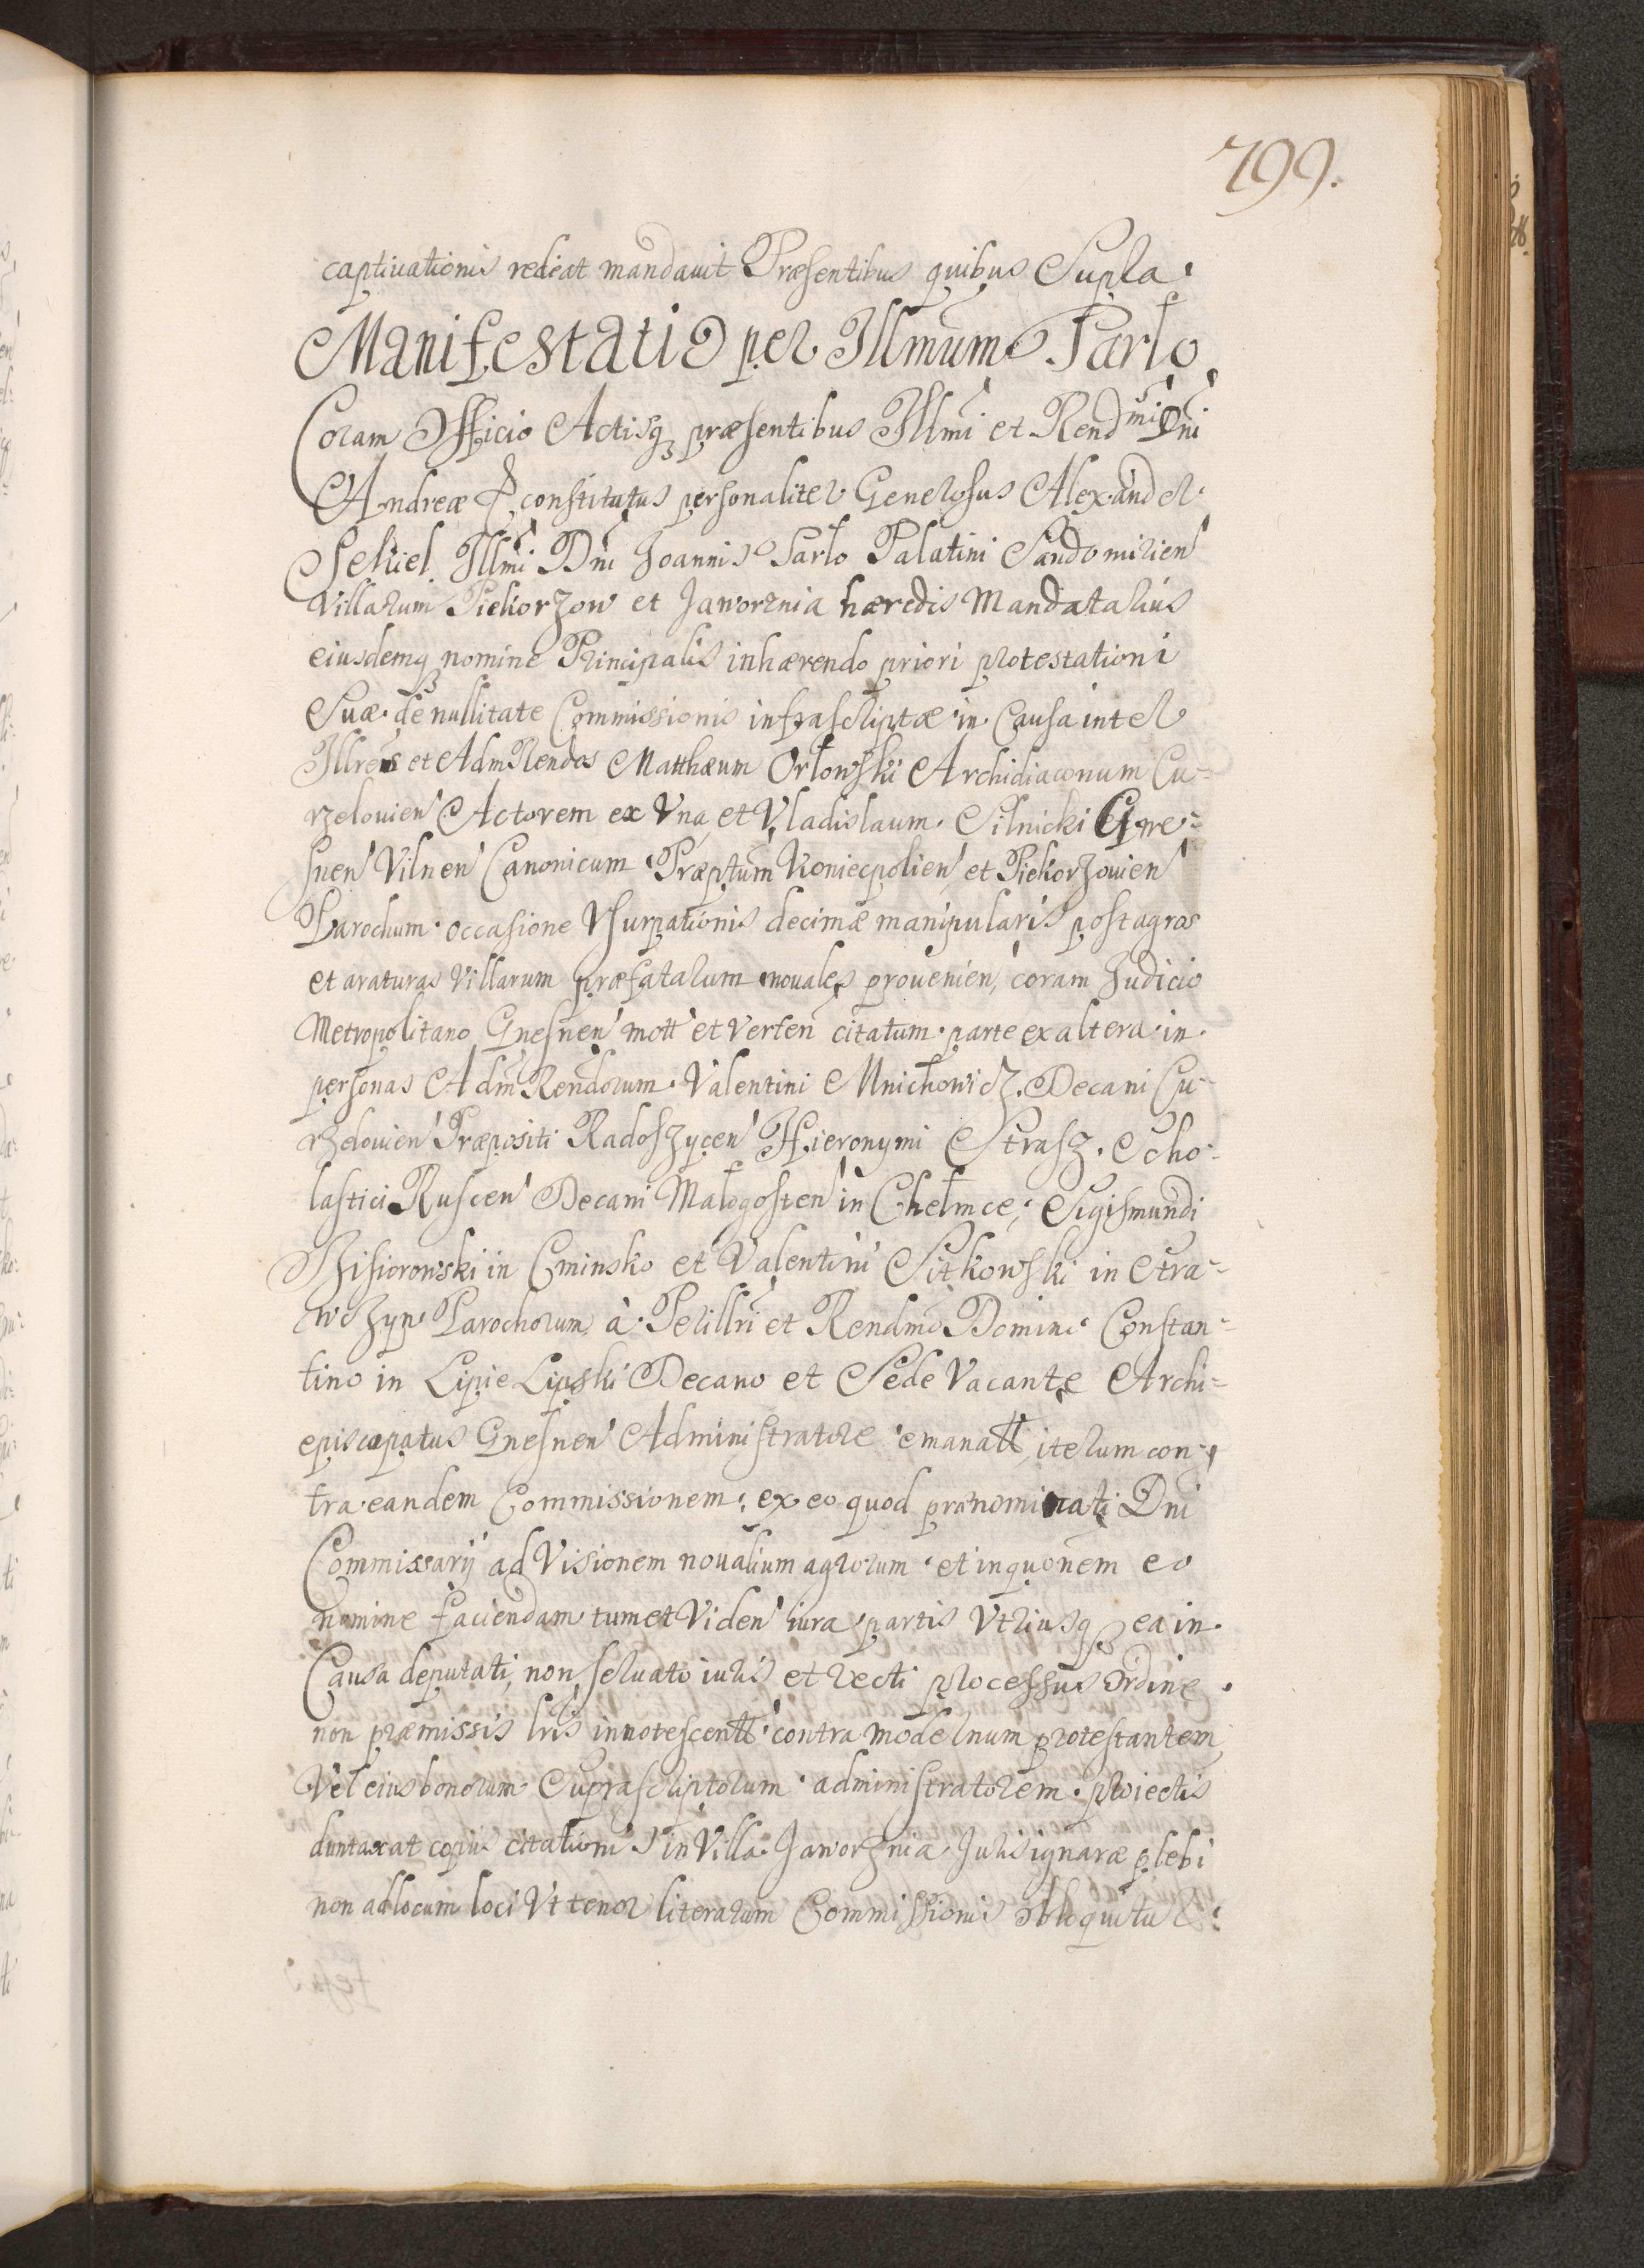 799.
captiuationis redeat mandauit Præsentibus quibus Supra.
Manifestatio per Illmum Tarło
Coram Officio Actisq præsentibus Illmi et Rendmi Dni
Andreæ &c constitutus personaliter Generosus Alexander
Sekiel Illmi Dni Joannis Tarło Palatini Sandomirien
Villarum Piekorzow et Jaworznia hæredis Mandatarius
eiusdemq nomine Principalis inhærendo priori protestationi
Suæ de nullitate Commissionis infrascriptæ in Causa inter
Illres et Adm Rendos Matthæum Orłowski Archidiaconum Cu=
rzelouien Actorem ex Vna et Vladislaum Silnicki Gne=
snen Vilnen Canonicum Præptum Koniecpolien et Piekorzouien
Parochum occasione Vsurpationis decimæ manipularis post agros
et araturas Villarum præfatarum nouales prouenien, coram Judicio
Metropolitano Gnesnen mott et verten citatum parte ex altera in
personas Adm Rendorum Valentini Mnichowicz Decani Cu=
rzelouien Præpositi Radoszycen Hieronymi Strasz Scho=
lastici Ruscen Decani Małogosten in Chełmce, Sigismundi
Żisiorowski in Cminsko et Valentini Sitkowski in Stra=
wczyn Parochorum à Perillri et Rendmo Domino Constan=
tino in Lipie Lipski Decano et Sede Vacante Archi=
episcopatus Gnesnen Administratore emanatt iterum con=
tra eandem Commissionem, ex eo quod prænominati Dni
Commissarij ad Visionem noualium agrorum et inquonem eo
nomine faciendam tum et Viden iura partis Vtriusq ea in
Causa deputati, non seruato iuris et recti processus ordine
non præmissis lris innotescentt contra modernum protestantem
Vel eius bonorum Suprascriptorum administratorem proiectis
duntaxat copiis citationis in Villa Jaworznia Juris ignaræ plebi
non ad locum loci Vt tenor literarum Commissionis obloquitur